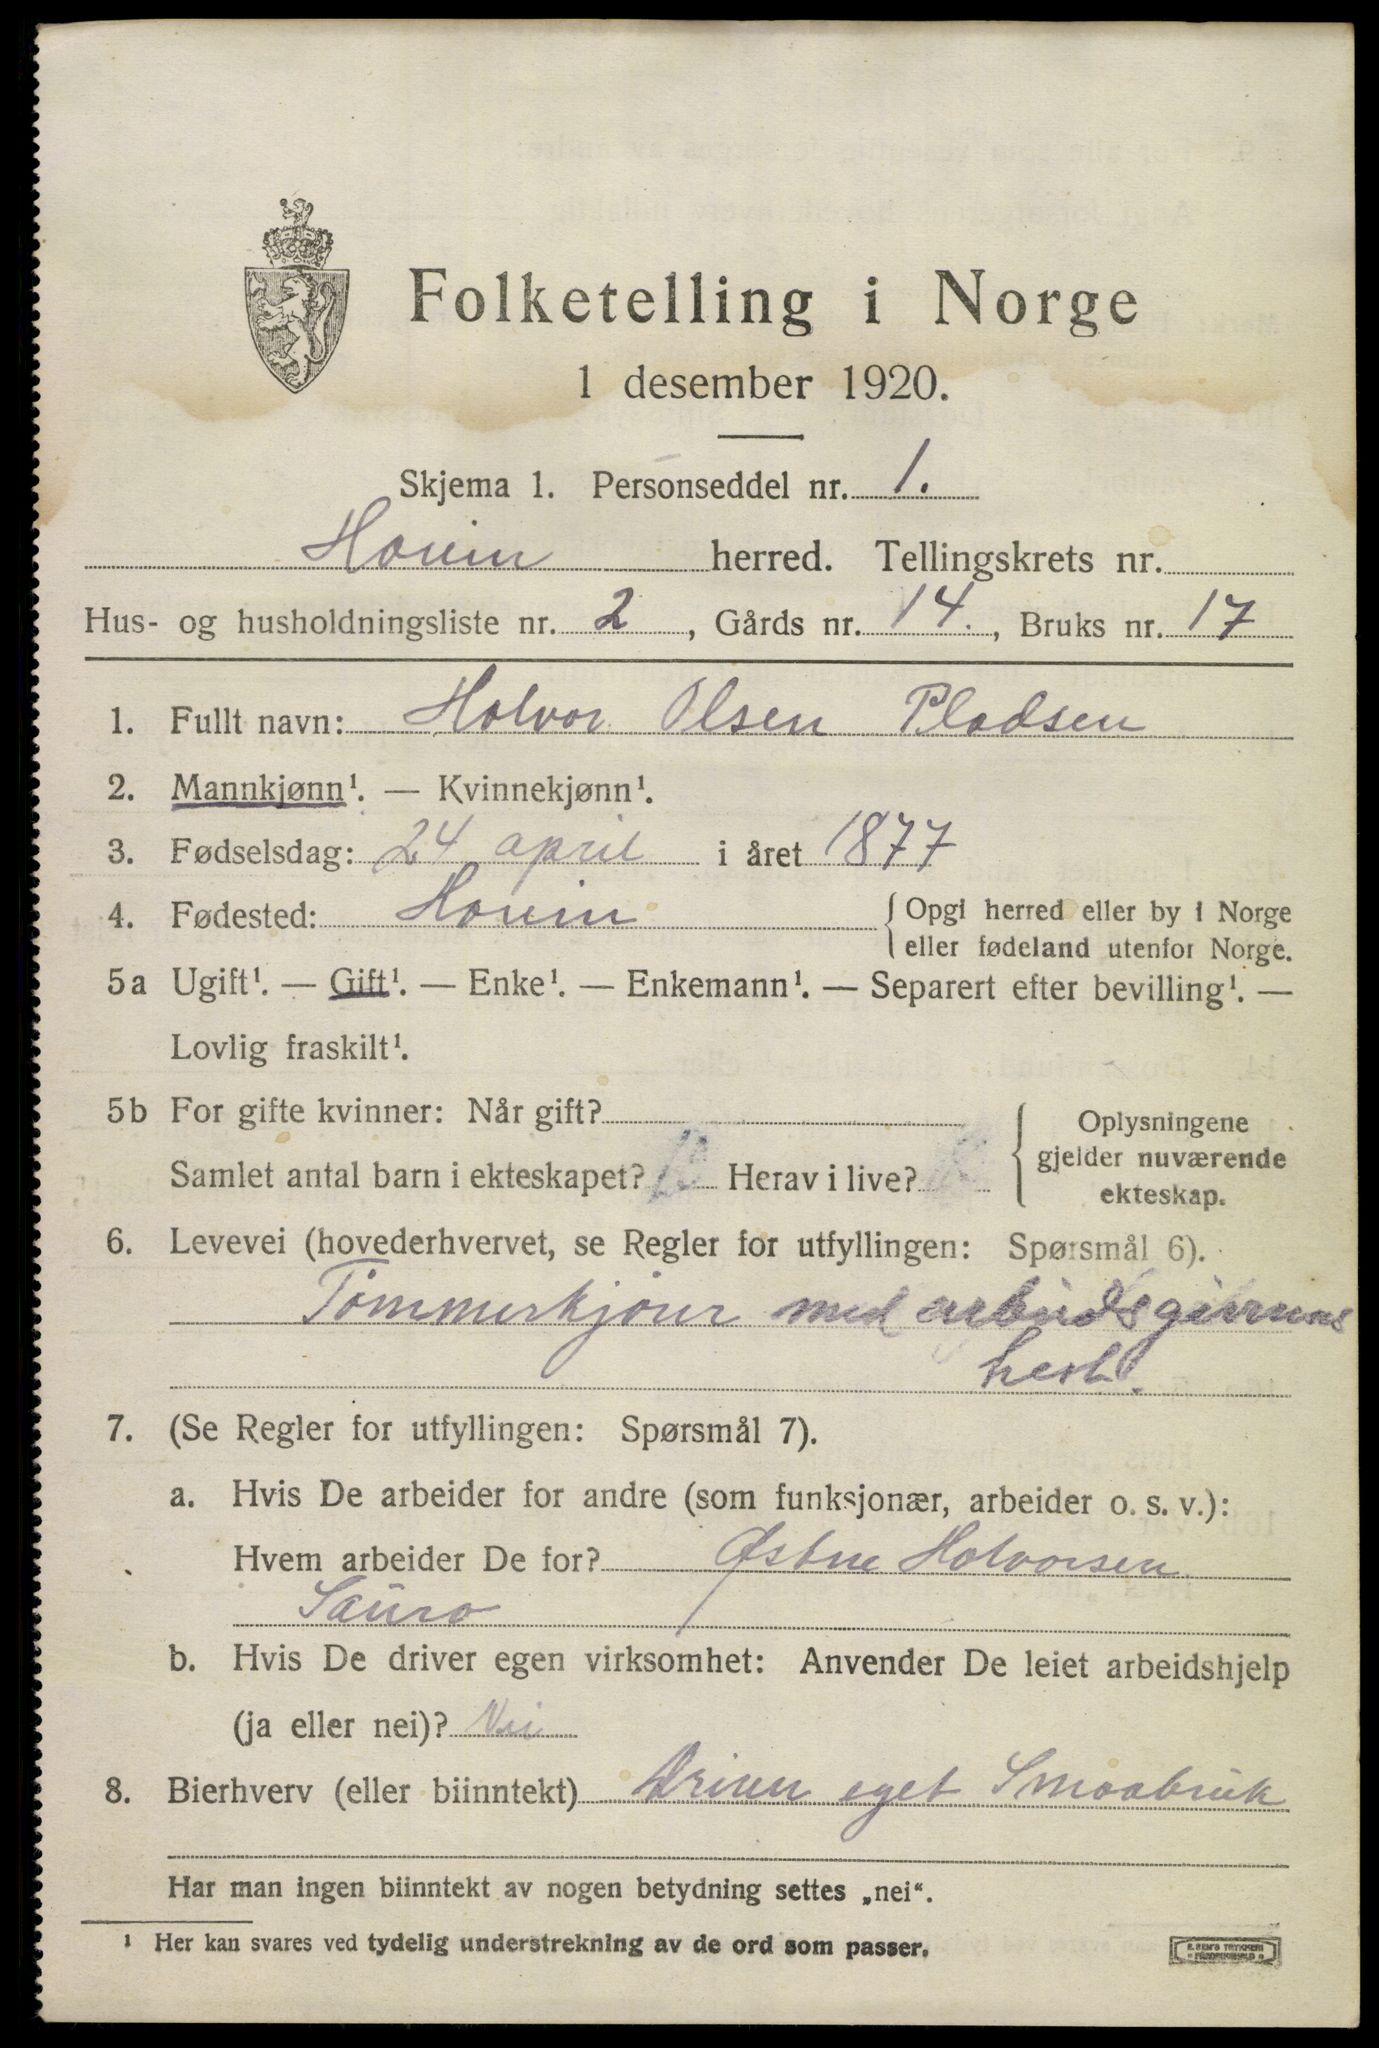 Folketelling i Norge
1 desember 1920.
Skjema 1. Personseddel nr. 1.
Hovin herred. Tellingskrets nr.
Hus- og husholdningsliste nr. 2, Gårds nr. 14., Bruks nr. 17
1. Fullt navn: Halvor Olsen Pladsen
2. Mannkjønn¹. — Kvinnekjønn¹.
3. Fødselsdag: 24 april i året 1877
4. Fødested: Hovin { Opgi herred eller by i Norge
eller fødeland utenfor Norge.
5a Ugift¹. — Gift¹. — Enke¹. — Enkemann¹. — Separert efter bevilling¹. —
Lovlig fraskilt¹.
5b For gifte kvinner: Når gift?
Samlet antal barn i ekteskapet? Herav i live?
{ Oplysningene
gjelder nuværende
ekteskap.
6. Levevei (hovederhvervet, se Regler for utfyllingen: Spørsmål 6).
Tömmerkjörer med arbeidsgiverens
hest.
7. (Se Regler for utfyllingen: Spørsmål 7).
a. Hvis De arbeider for andre (som funksjonær, arbeider o. s. v.):
Hvem arbeider De for? Østen Halvorsen
b. Hvis De driver egen virksomhet: Anvender De leiet arbeidshjelp
(ja eller nei)? Nei
8. Bierhverv (eller biinntekt) Driver eget Smaabruk
Har man ingen biinntekt av nogen betydning settes „nei“.
¹ Her kan svares ved tydelig understrekning av de ord som passer.